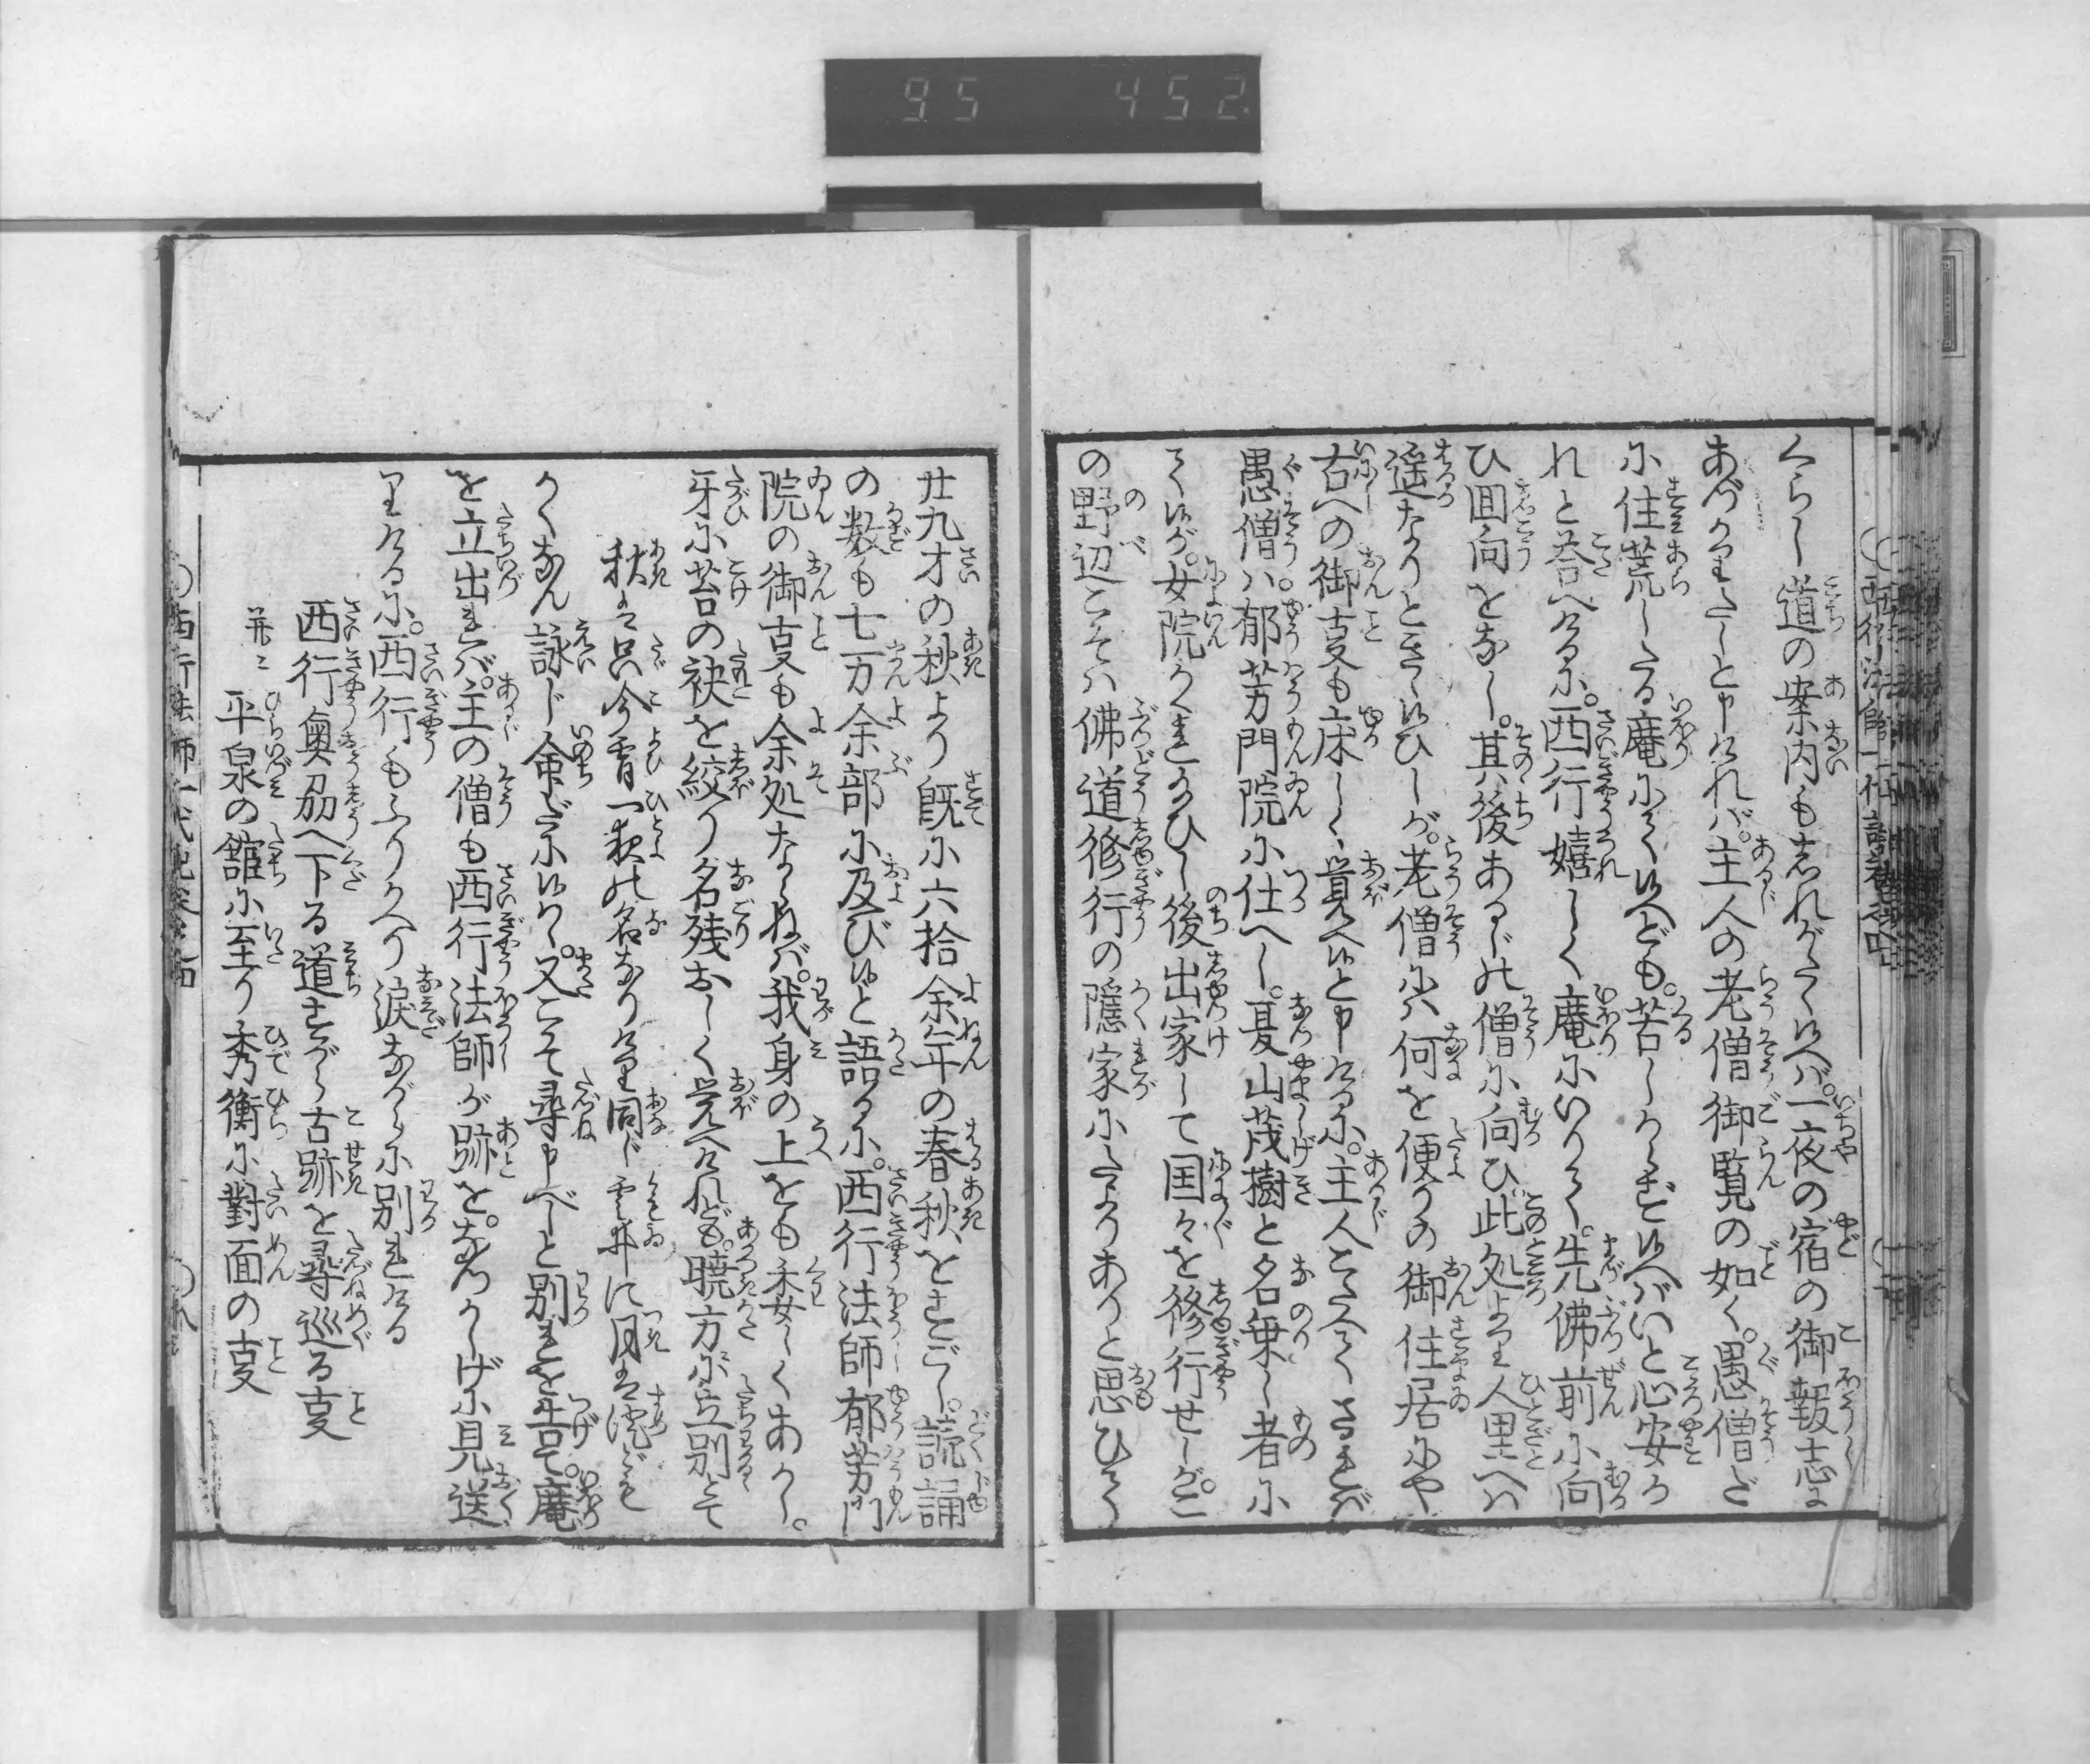 95 452
くらし道の案内もしれがたく候へバ。一夜の宿の御報志に
あづかりたしと申けれバ。主人の老僧御覧の如く。愚僧だ
に住荒したる庵にて候へども。苦しからず候へバいと心安か
れと答へけるに。西行嬉しく庵にいりて。先佛前に向
ひ回向をなし。其後あるじの僧に向ひ此処より人里へハ
遥なりときゝ候ひしが。老僧ハ何を便りの御住居にや
古への御事も床しく覚へ候と申けるに。主人こたへてさればバ
愚僧ハ。郁芳門院に仕へし。夏山茂樹と名乗し者に
て候が。女院かくれ給ひし後出家して国々を修行せしが。こ
の野辺こそハ佛道修行の隠家にたよりありと思ひて
廿九才の秋より既に六拾余年の春秋をすごし。読誦
の数も七万余部に及び候と語るに。西行法師郁芳門
院の御事も余処ならねバ。我身の上をも委しくあかし。
牙に苔の袂を絞り名残おしく覚へけれども。暁方に立別とて
秋は只今宵一夜の名なりけり同じ雲井に月は澄ども
かくなん詠じ命だに候はゞ。又こそ尋申べしと別れを告て。庵
を立出れバ。主の僧も西行法師が跡を。なつかしげに見送
りけるに。西行もふりかへり涙ながらに別れける
西行奥刕へ下る道すがら古跡を尋巡る事
并ニ 平泉の舘に至り秀衡に對面の事
西行法師一代記